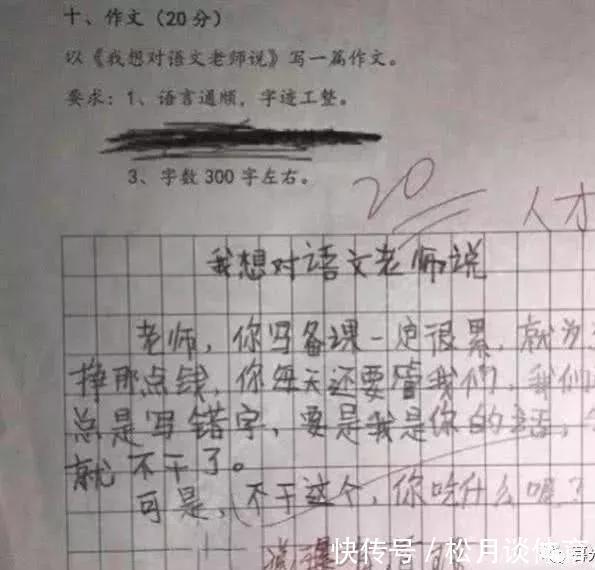 十、作文（20分）
以《我想对语文老师说》写一篇作文。
要求：1、语言通顺，字迹工整。
3、字数300字左右。
20
人才
我想对语文老师说
老师，你写备课一定很累，就为
挣那点钱，你每天还要管我们，我们
总是写错字，要是我是你的话，
就不干了。
可是，不干这个，你吃什么呢？
快传号/松月谈体育